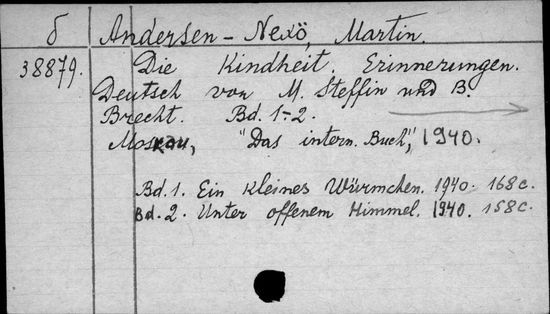 б Andersen-Nexö, Martin.
38879. Die Kindheit. Erinnerungen.
Deutsch von M. Steffin und B.
Brecht. Bd. 1-2.
Moskau, "Das intern. Buch", 1940.
Bd. 1. Ein kleines Würmchen. 1940. 168 c.
Bd. 2. Unter offenem Himmel. 1940. 158 c.